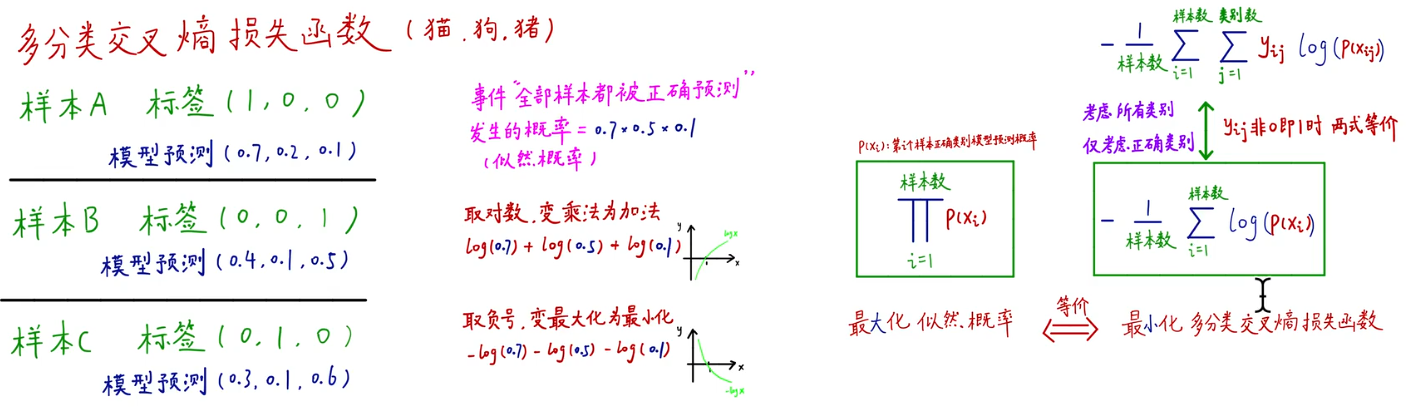 多分类交叉熵损失函数 (猫.狗.猪)
样本A 标签 (1, 0, 0)
模型预测 (0.7, 0.2, 0.1)
样本B 标签 (0, 0, 1)
模型预测 (0.4, 0.1, 0.5)
样本C 标签 (0, 1, 0)
模型预测 (0.3, 0.1, 0.6)
事件“全部样本都被正确预测”
发生的概率 = 0.7*0.5*0.1
(似然概率)
取对数,变乘法为加法
log(0.7) + log(0.5) + log(0.1)
y
logx
x
取负号,变最大化为最小化
-log(0.7) - log(0.5) - log(0.1)
y
x
-logx
P(xi): 第i个样本正确类别模型预测概率
样本数
∏ P(xi)
i=1
最大化 似然概率
等价
样本数 类别数
- 1/样本数 ∑ ∑ yij log(P(xij))
i=1 j=1
考虑所有类别
仅考虑正确类别
yij非0即1时 两式等价
样本数
- 1/样本数 ∑ log(P(xi))
i=1
最小化 多分类交叉熵损失函数